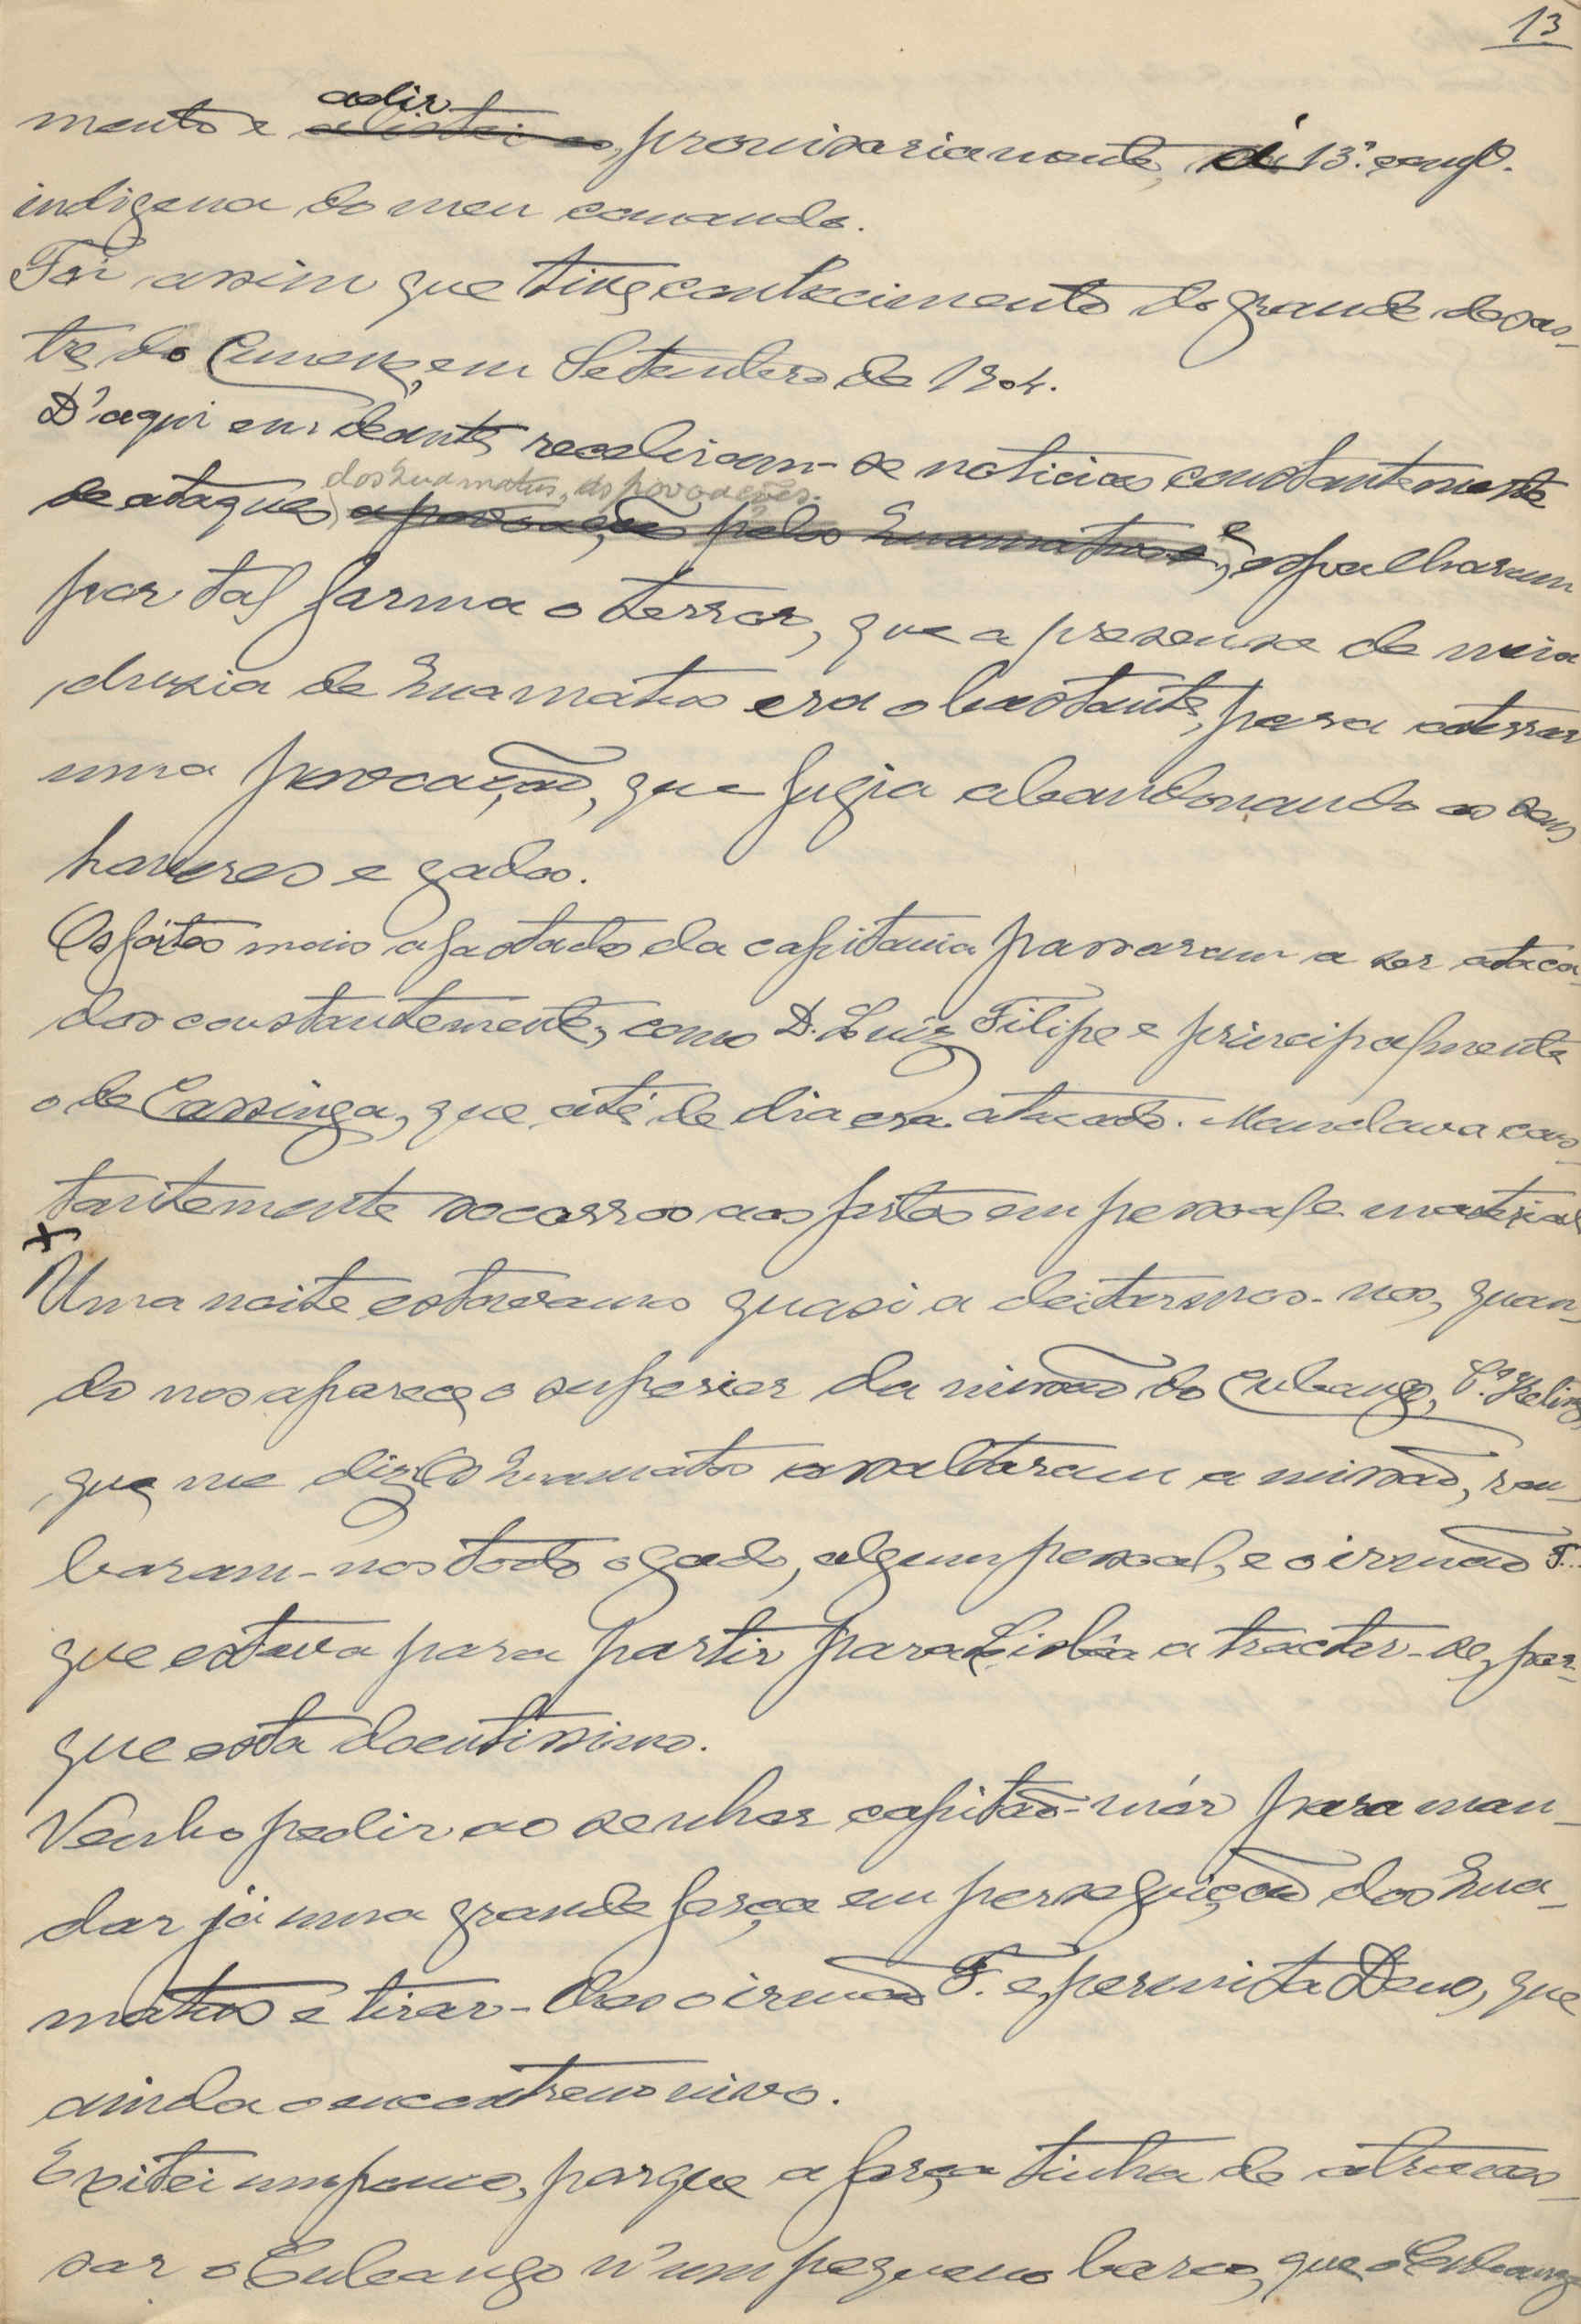 13
mento e adir ~~alistei-os~~, provisoriamente, á 13ª. compª.
indigena do meu comando.
Foi assim que tive conhecimento do grande desas-
tre do Cunene, em Setembro de 1904.
D'aqui em deante receberam-se noticias constantemente
de ataques dos Cuamatos, ás povoações. ~~a povoações pelos Cuamatos~~ e, espalharam
por tal forma o terror, que a presensa de meia
duzia de Cuamatos era o bastante, para aterrar
uma povoação, que fugia abandonando os seus
haveres e gados.
Os fórtes mais afastados da capitania passaram a ser ataca-
dos constantemente, como D. Luiz Filipe e principalmente
o de Cassinga, que até de dia era atacado. Mandava cons-
tantemente socorros aos fortes em pessoal e material
x
Uma noite estavamos quasi a deitarmos-nos, quan-
do nos aparece o superior da missão do Cubango,
que me diz: Os Cuamatos assaltaram a missão, rou-
baram-nos todo o gado, algum pessoal, e o irmão F...
que estava para partir para Lisbôa a tractar-se, por-
que está doentissimo.
Venho pedir ao senhor capitão-mór para man-
dar já uma grande força em perseguição dos Cua-
matos e tirar-lhes o irmão F. e, permita Deus, que
ainda o encontremos vivo.
Exitei um pouco, porque a força tinha de atraves-
sar o Cubango n'um pequeno barco, que o Cubango